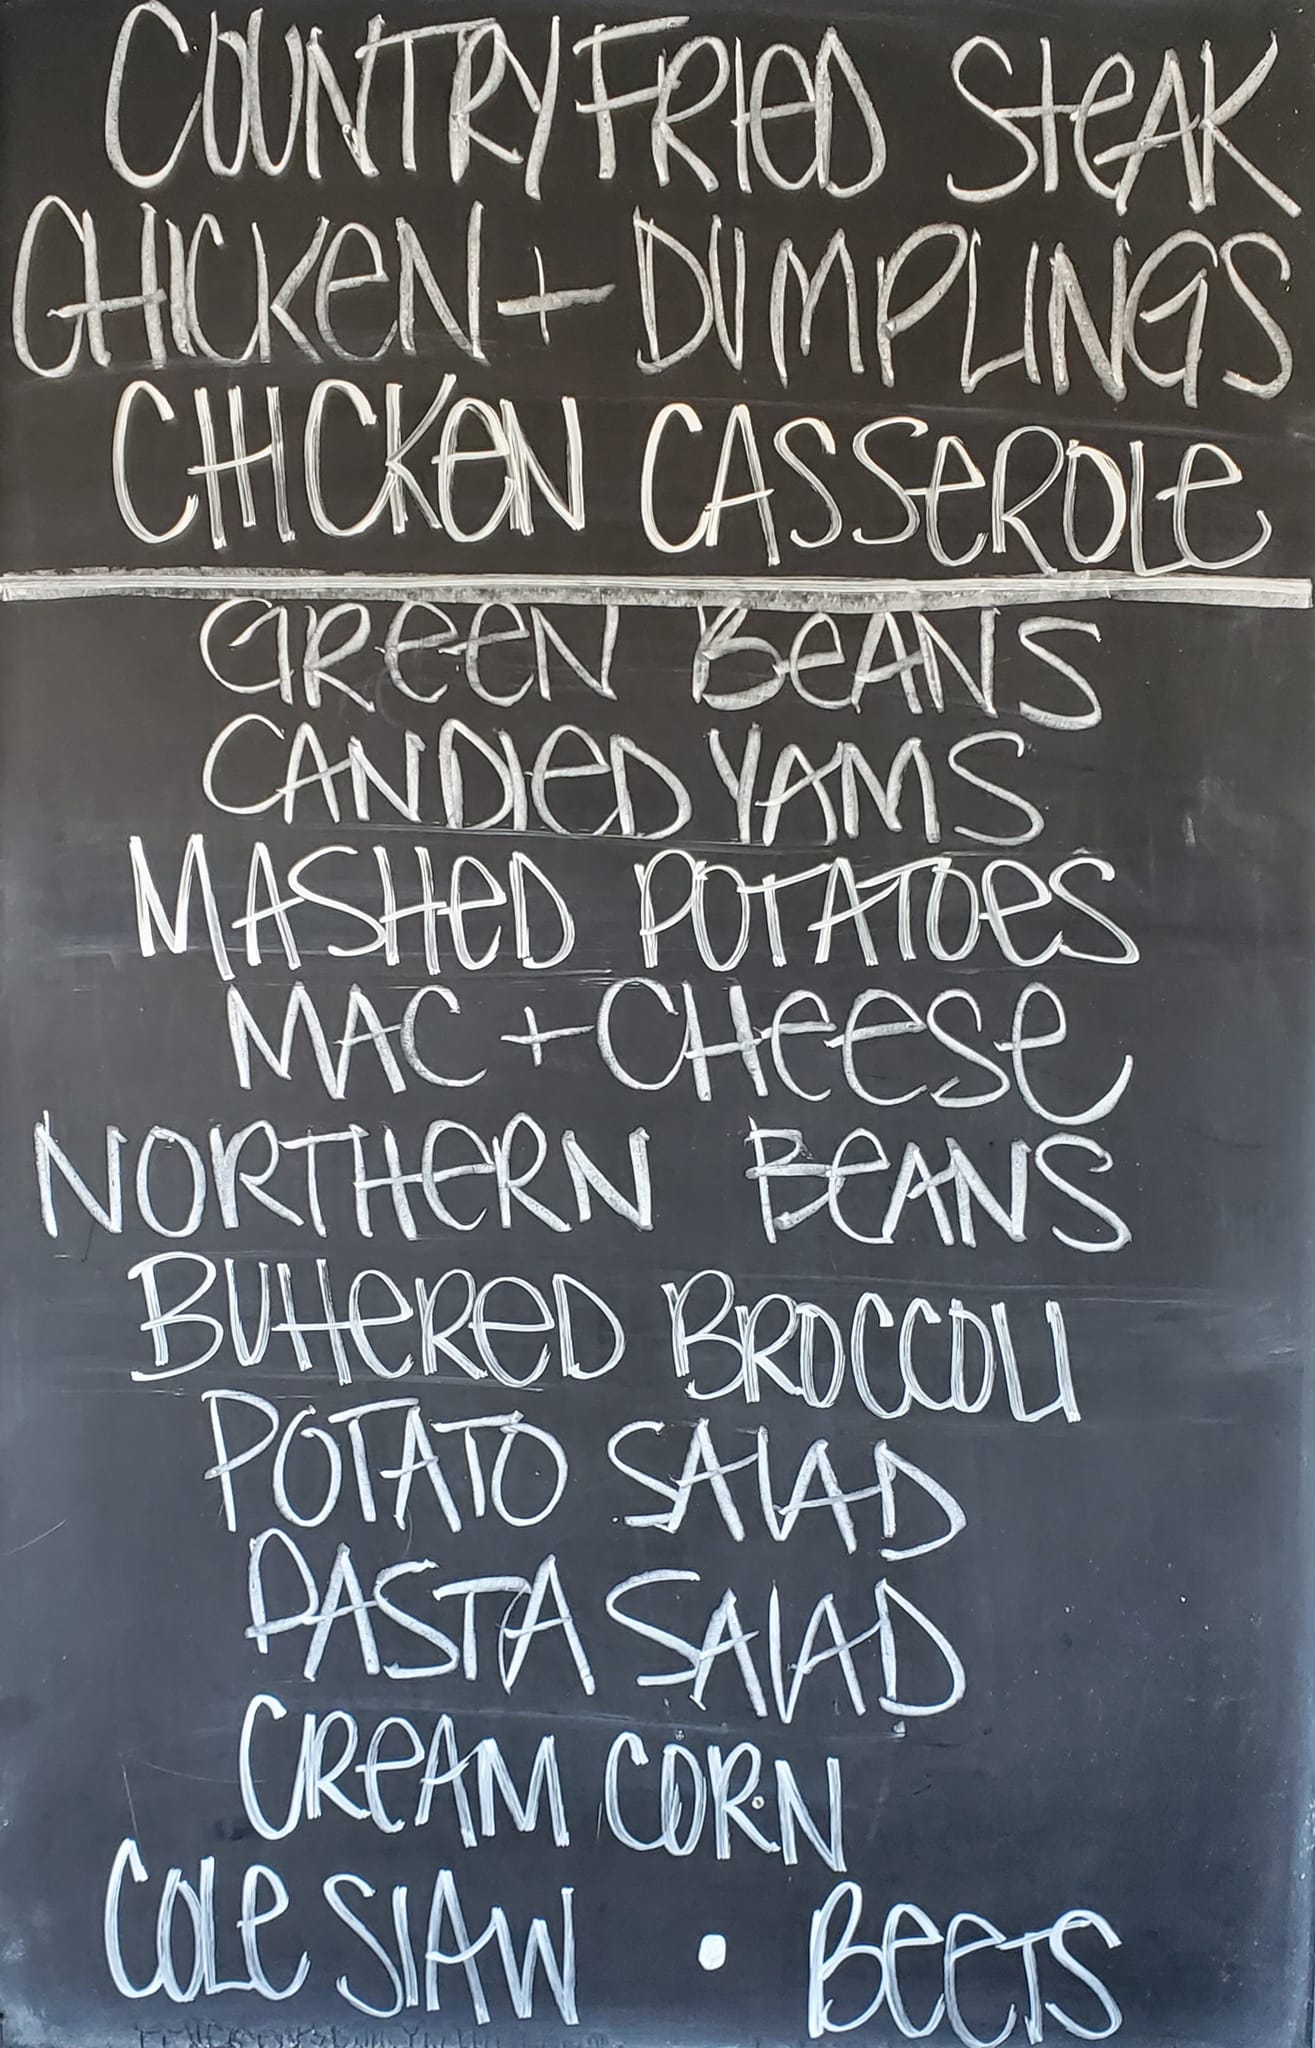 COUNTRY FRIED STEAK
CHICKEN + DUMPLINGS
CHICKEN CASSEROLE
GREEN BEANS
CANDIED YAMS
MASHED POTATOES
MAC + CHEESE
NORTHERN BEANS
BUTTERED BROCCOLI
POTATO SALAD
PASTA SALAD
CREAM CORN
COLE SLAW • BEETS